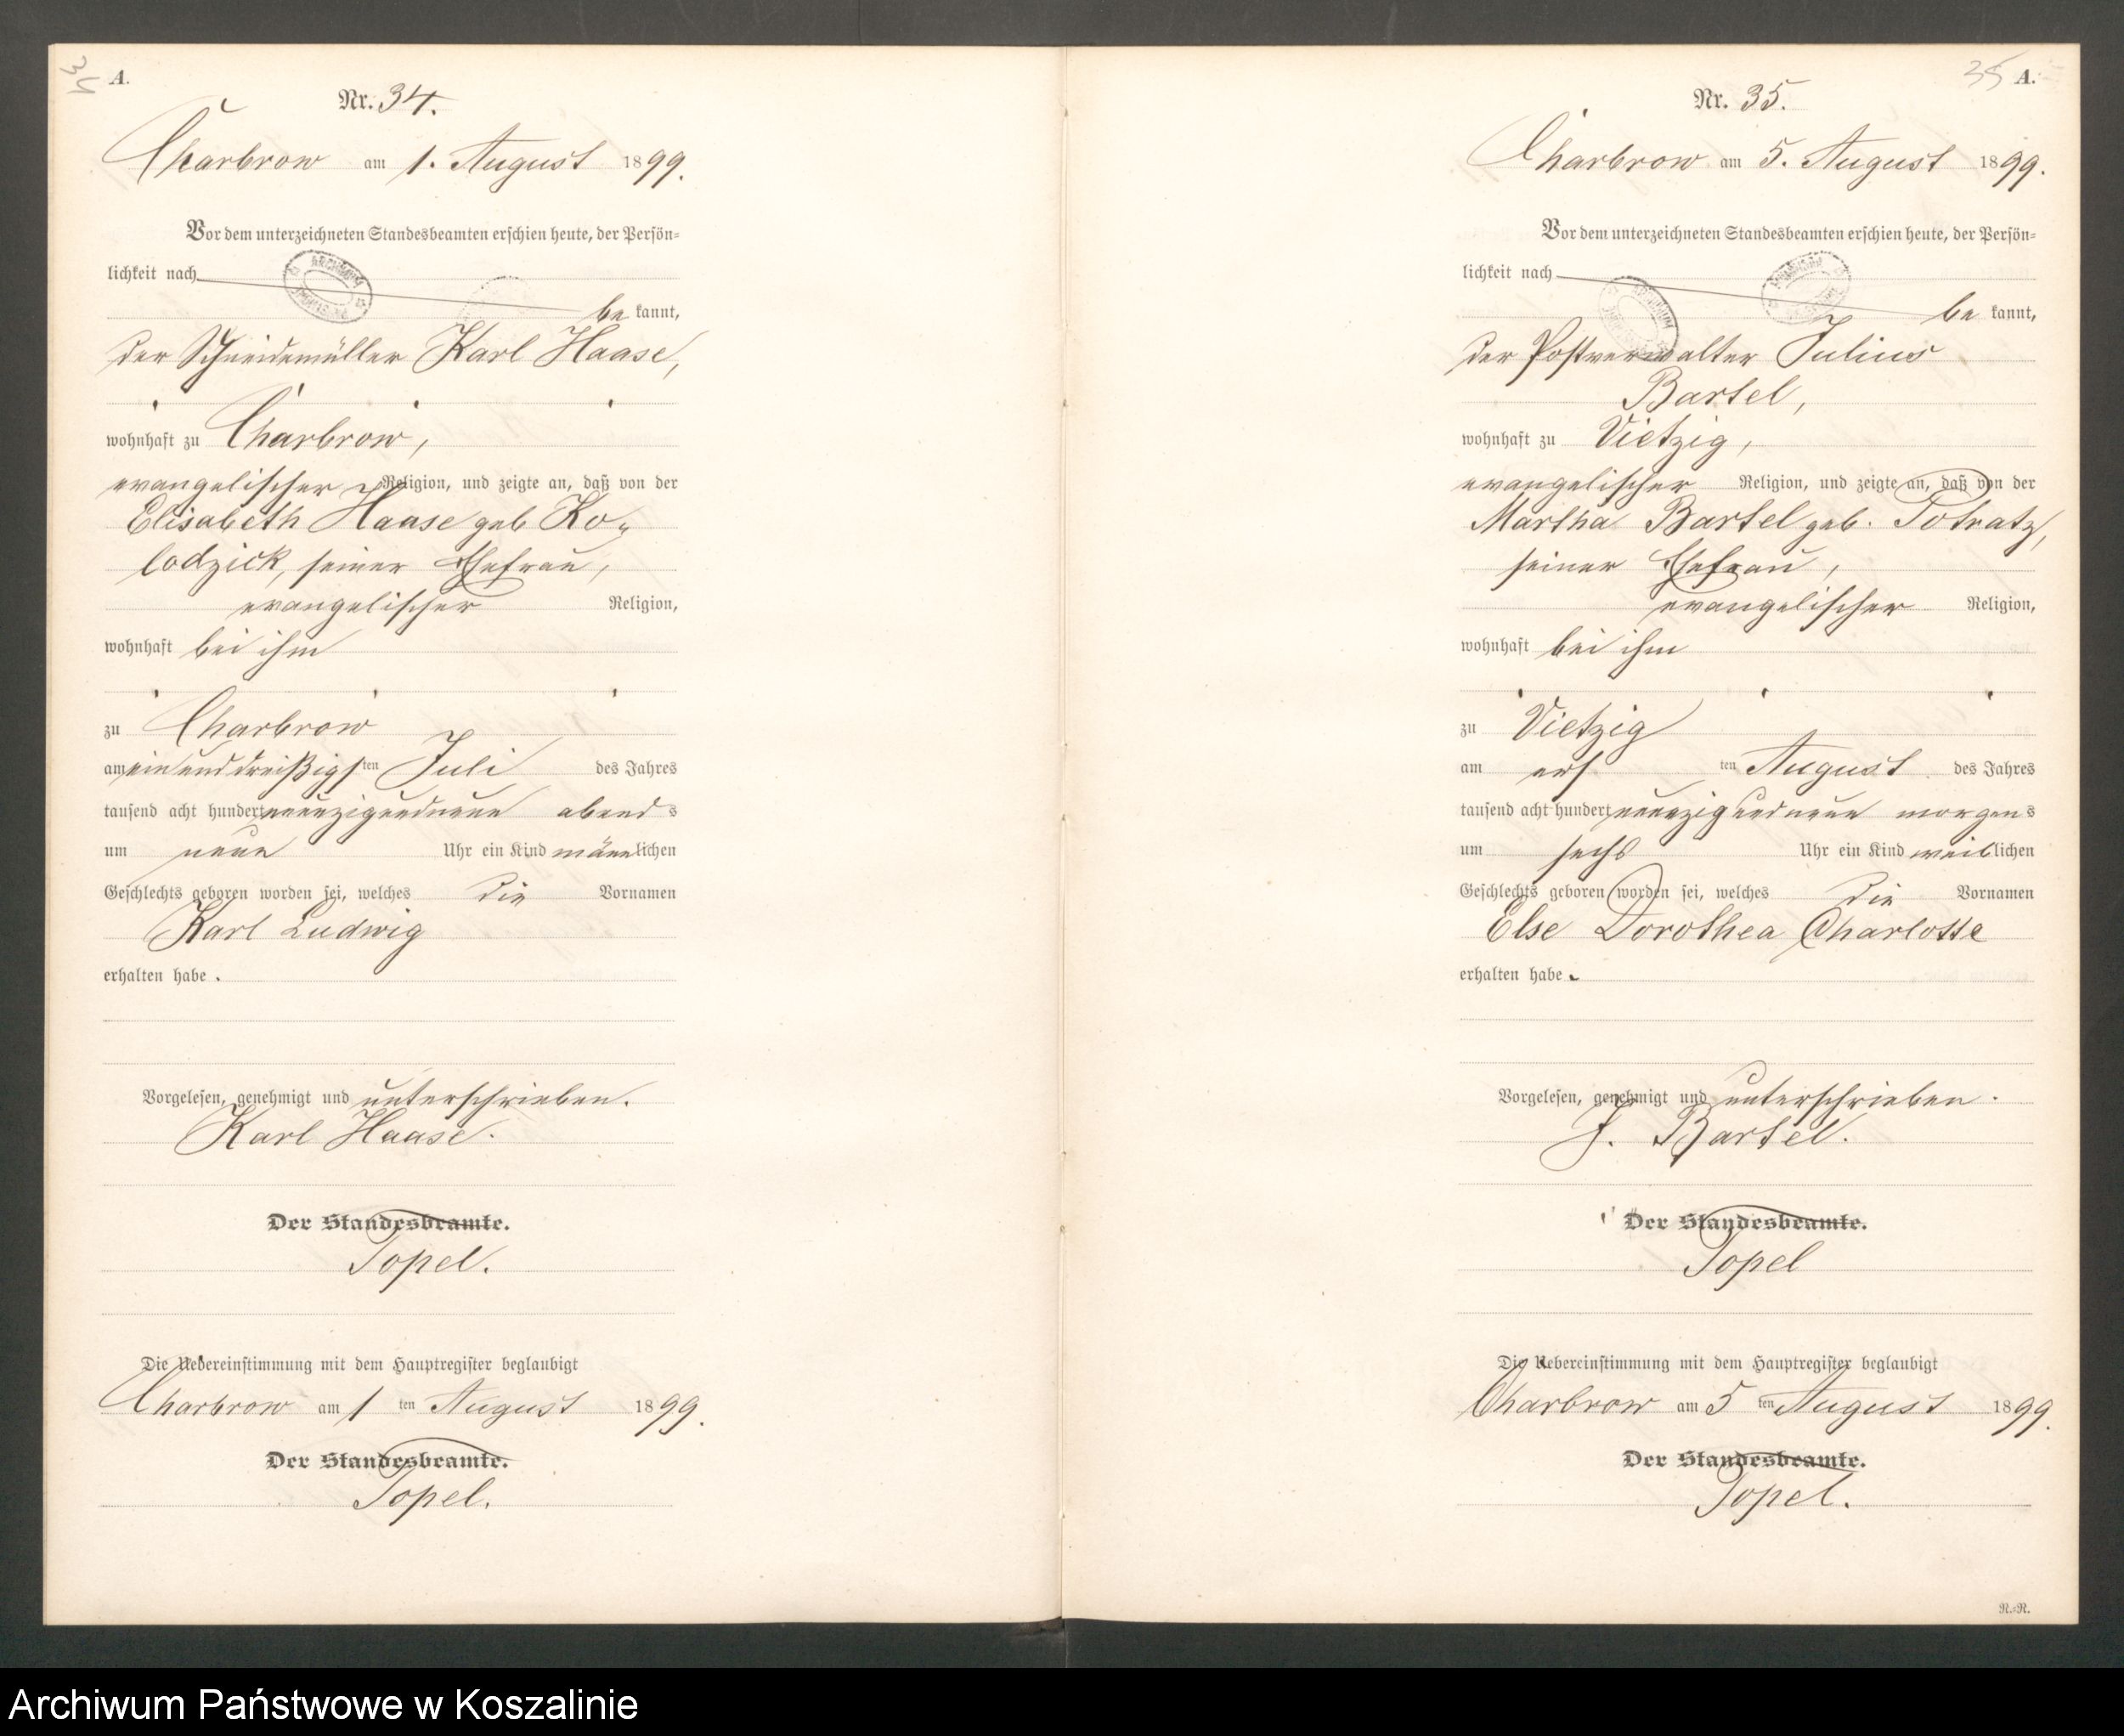 34
A.
Nr. 34.
Charbrow am 1. August 1899.
Vor dem unterzeichneten Standesbeamten erschien heute, der Persön=
lichkeit nach
be kannt,
der Schneidemüller Karl Haase,
wohnhaft zu Charbrow,
evangelischer Religion, und zeigte an, daß von der
Elisabeth Haase geb Ko„
lodzick, seiner Ehefrau,
evangelischer Religion,
wohnhaft bei ihm
zu Charbrow
am einunddreißigsten Juli des Jahres
tausend acht hundert neunzigundneun abends
um neun Uhr ein Kind männlichen
Geschlechts geboren worden sei, welches die Vornamen
Karl Ludwig
erhalten habe.
Vorgelesen, genehmigt und unterschrieben.
Karl Haase.
Der Standesbeamte.
Topel.
Die Uebereinstimmung mit dem Hauptregister beglaubigt
Charbrow am 1 ten August 1899.
Der Standesbeamte.
Topel.
35 A.
Nr. 35.
Charbrow am 5. August 1899.
Vor dem unterzeichneten Standesbeamten erschien heute, der Persön=
lichkeit nach
be kannt,
der Postverwalter Julius
Bartel,
wohnhaft zu Vietzig,
evangelischer Religion, und zeigte an, daß von der
Martha Bartel geb. Potratz,
seiner Ehefrau,
evangelischer Religion,
wohnhaft bei ihm
zu Vietzig
am ersten August des Jahres
tausend acht hundert neunzigundneun morgens
um sechs Uhr ein Kind weiblichen
Geschlechts geboren worden sei, welches die Vornamen
Else Dorothea Charlotte
erhalten habe.
Vorgelesen, genehmigt und unterschrieben.
J. Bartel.
Der Standesbeamte.
Topel
Die Uebereinstimmung mit dem Hauptregister beglaubigt
Charbrow am 5 ten August 1899.
Der Standesbeamte.
Topel.
R.=R.
Archiwum Państwowe w Koszalinie